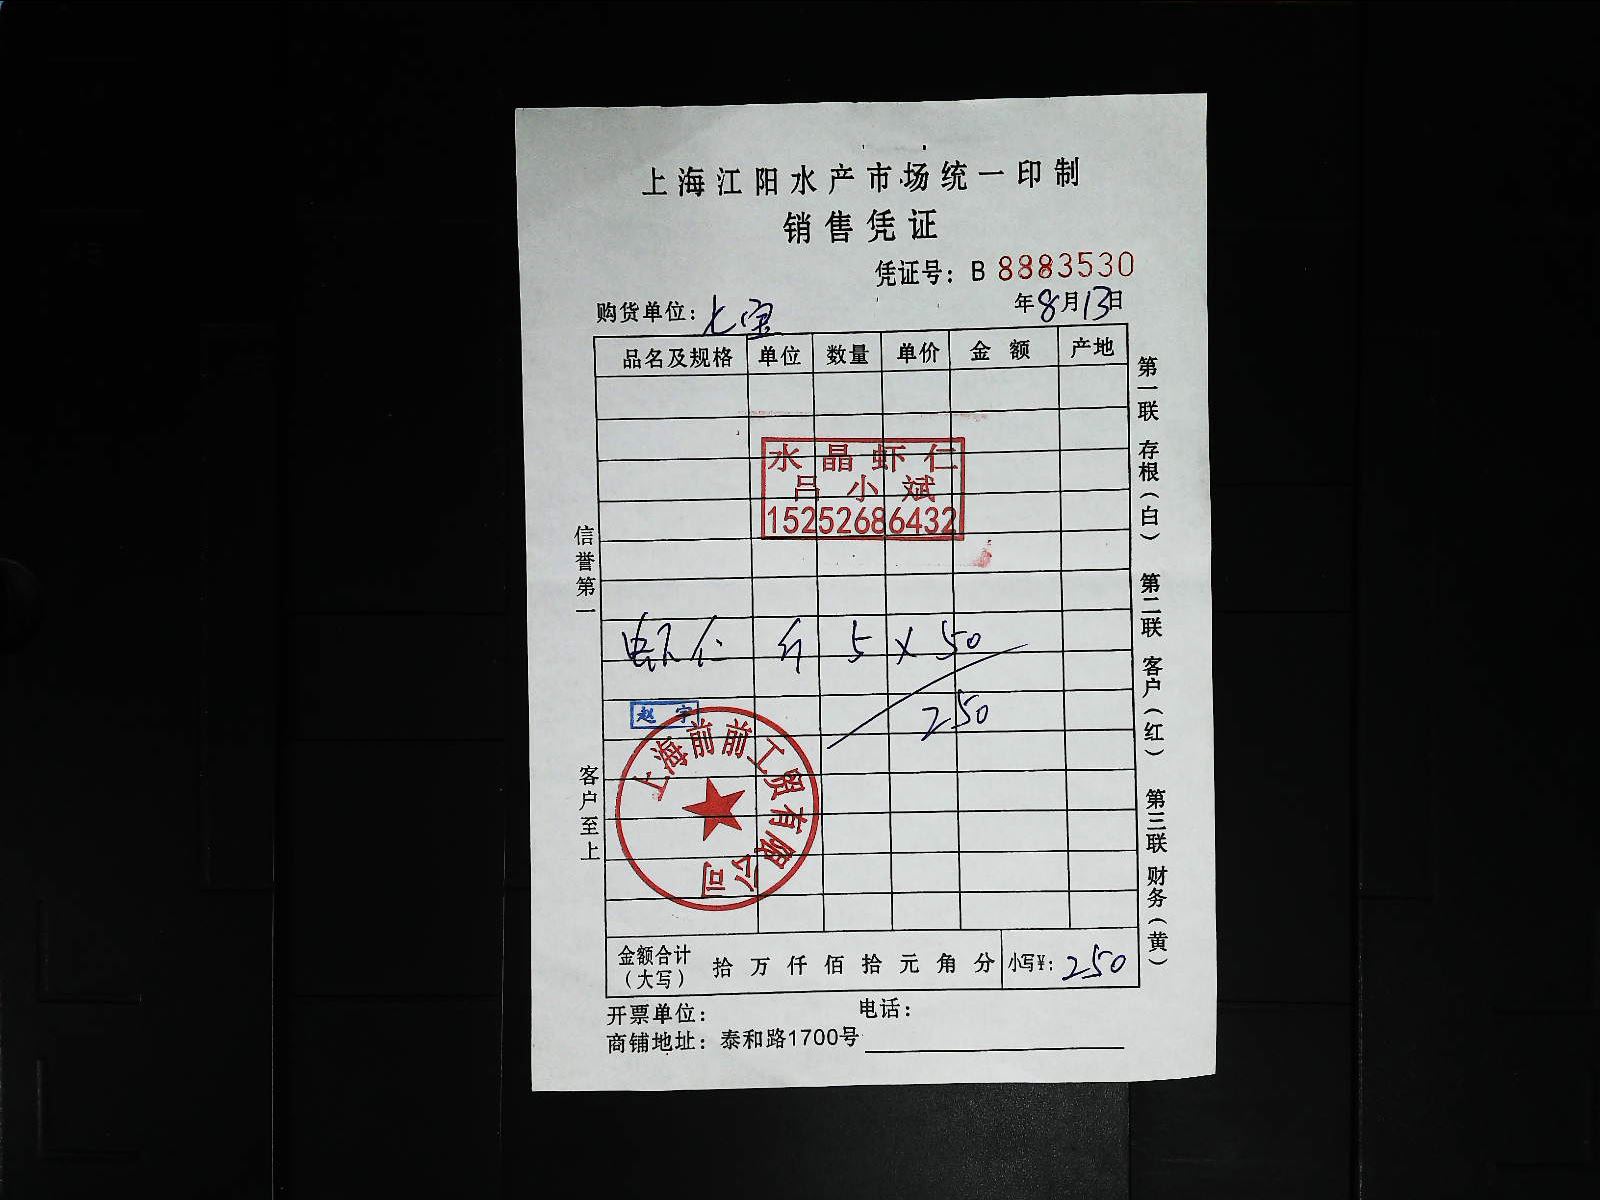 上海江阳水产市场统一印制
销售凭证
凭证号：B 8883530
购货单位：七宝
年8月13日
品名及规格 单位 数量 单价 金额 产地
水晶虾仁
吕小斌
15252686432
虾仁 斤 5 × 50
250
赵宇
上海前前工贸有限公司
金额合计（大写） 拾 万 仟 佰 拾 元 角 分 小写¥：250
开票单位： 电话：
商铺地址：泰和路1700号
信誉第一
客户至上
第一联 存根（白） 第二联 客户（红） 第三联 财务（黄）